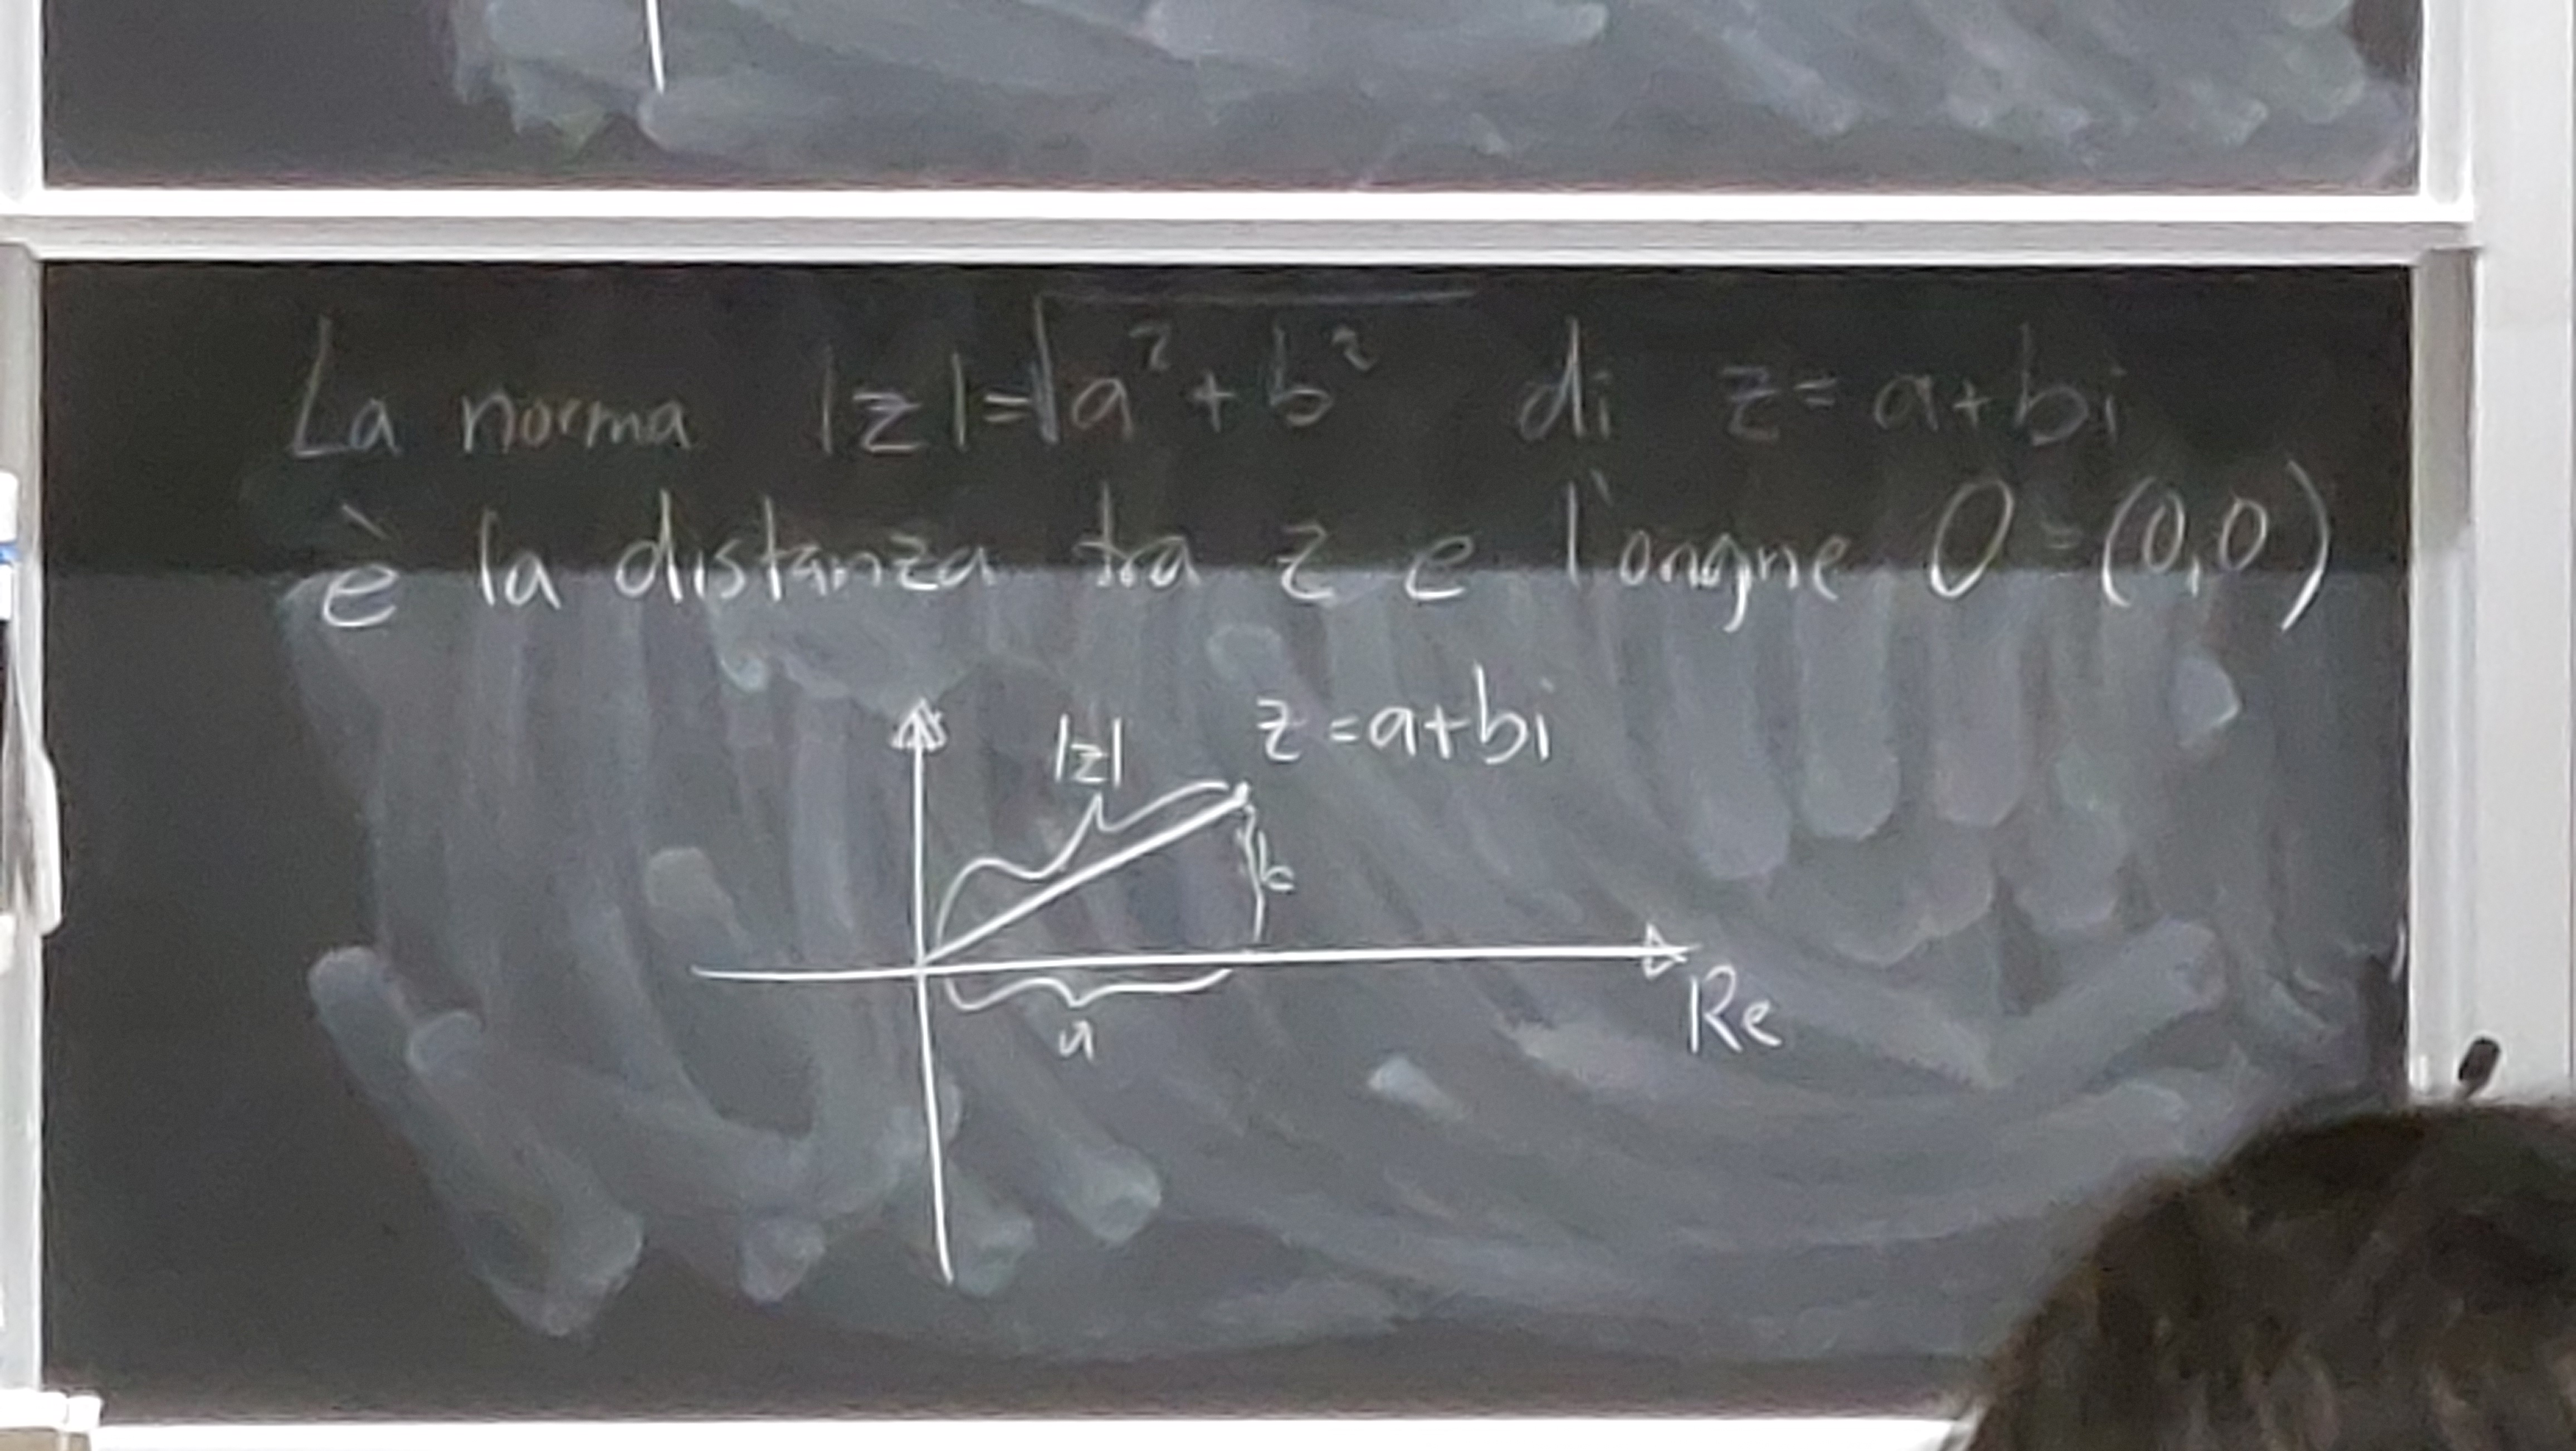 La norma |z|=√a²+b² di z=a+bi
è la distanza tra z e l'origine O=(0,0)
|z|
z=a+bi
b
a
Re